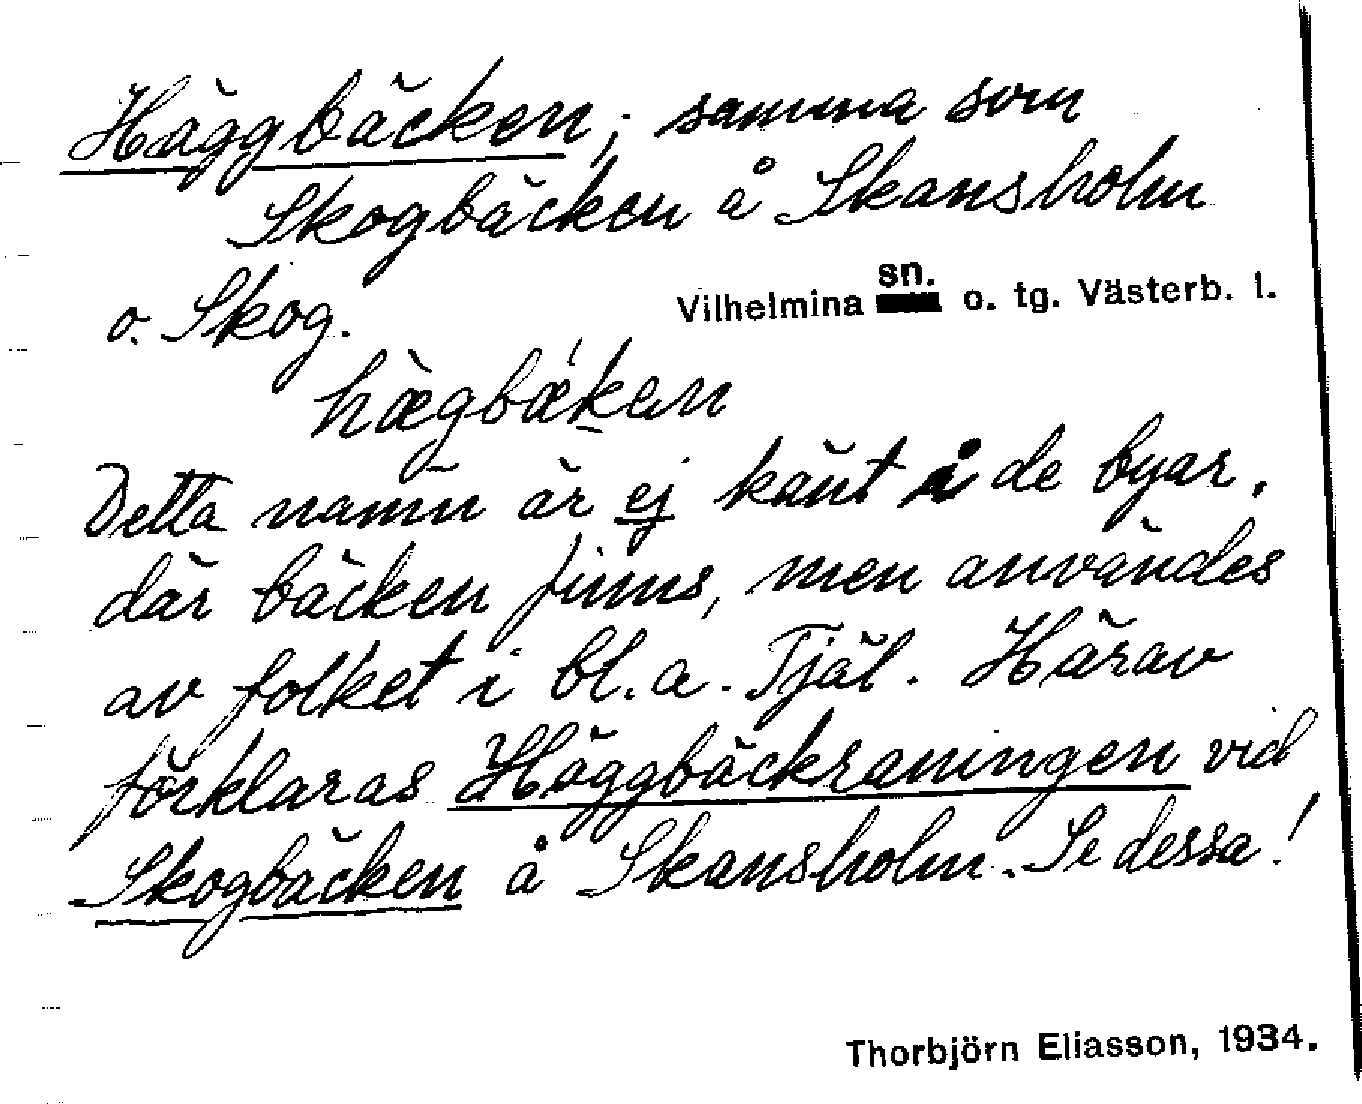 Häggbäcken; samma som
Skogbäcken å Skansholm
o. Skog.
Vilhelmina sn. o. tg. Västerb. l.
hὰgbǽkan
Detta namn är ej känt å de byar,
där bäcken finns, men användes
av folket i bl. a. Tjäl. Härav
förklaras Häggbäckraningen vid
Skogbäcken å Skansholm. Se dessa!
Thorbjörn Eliasson, 1934.